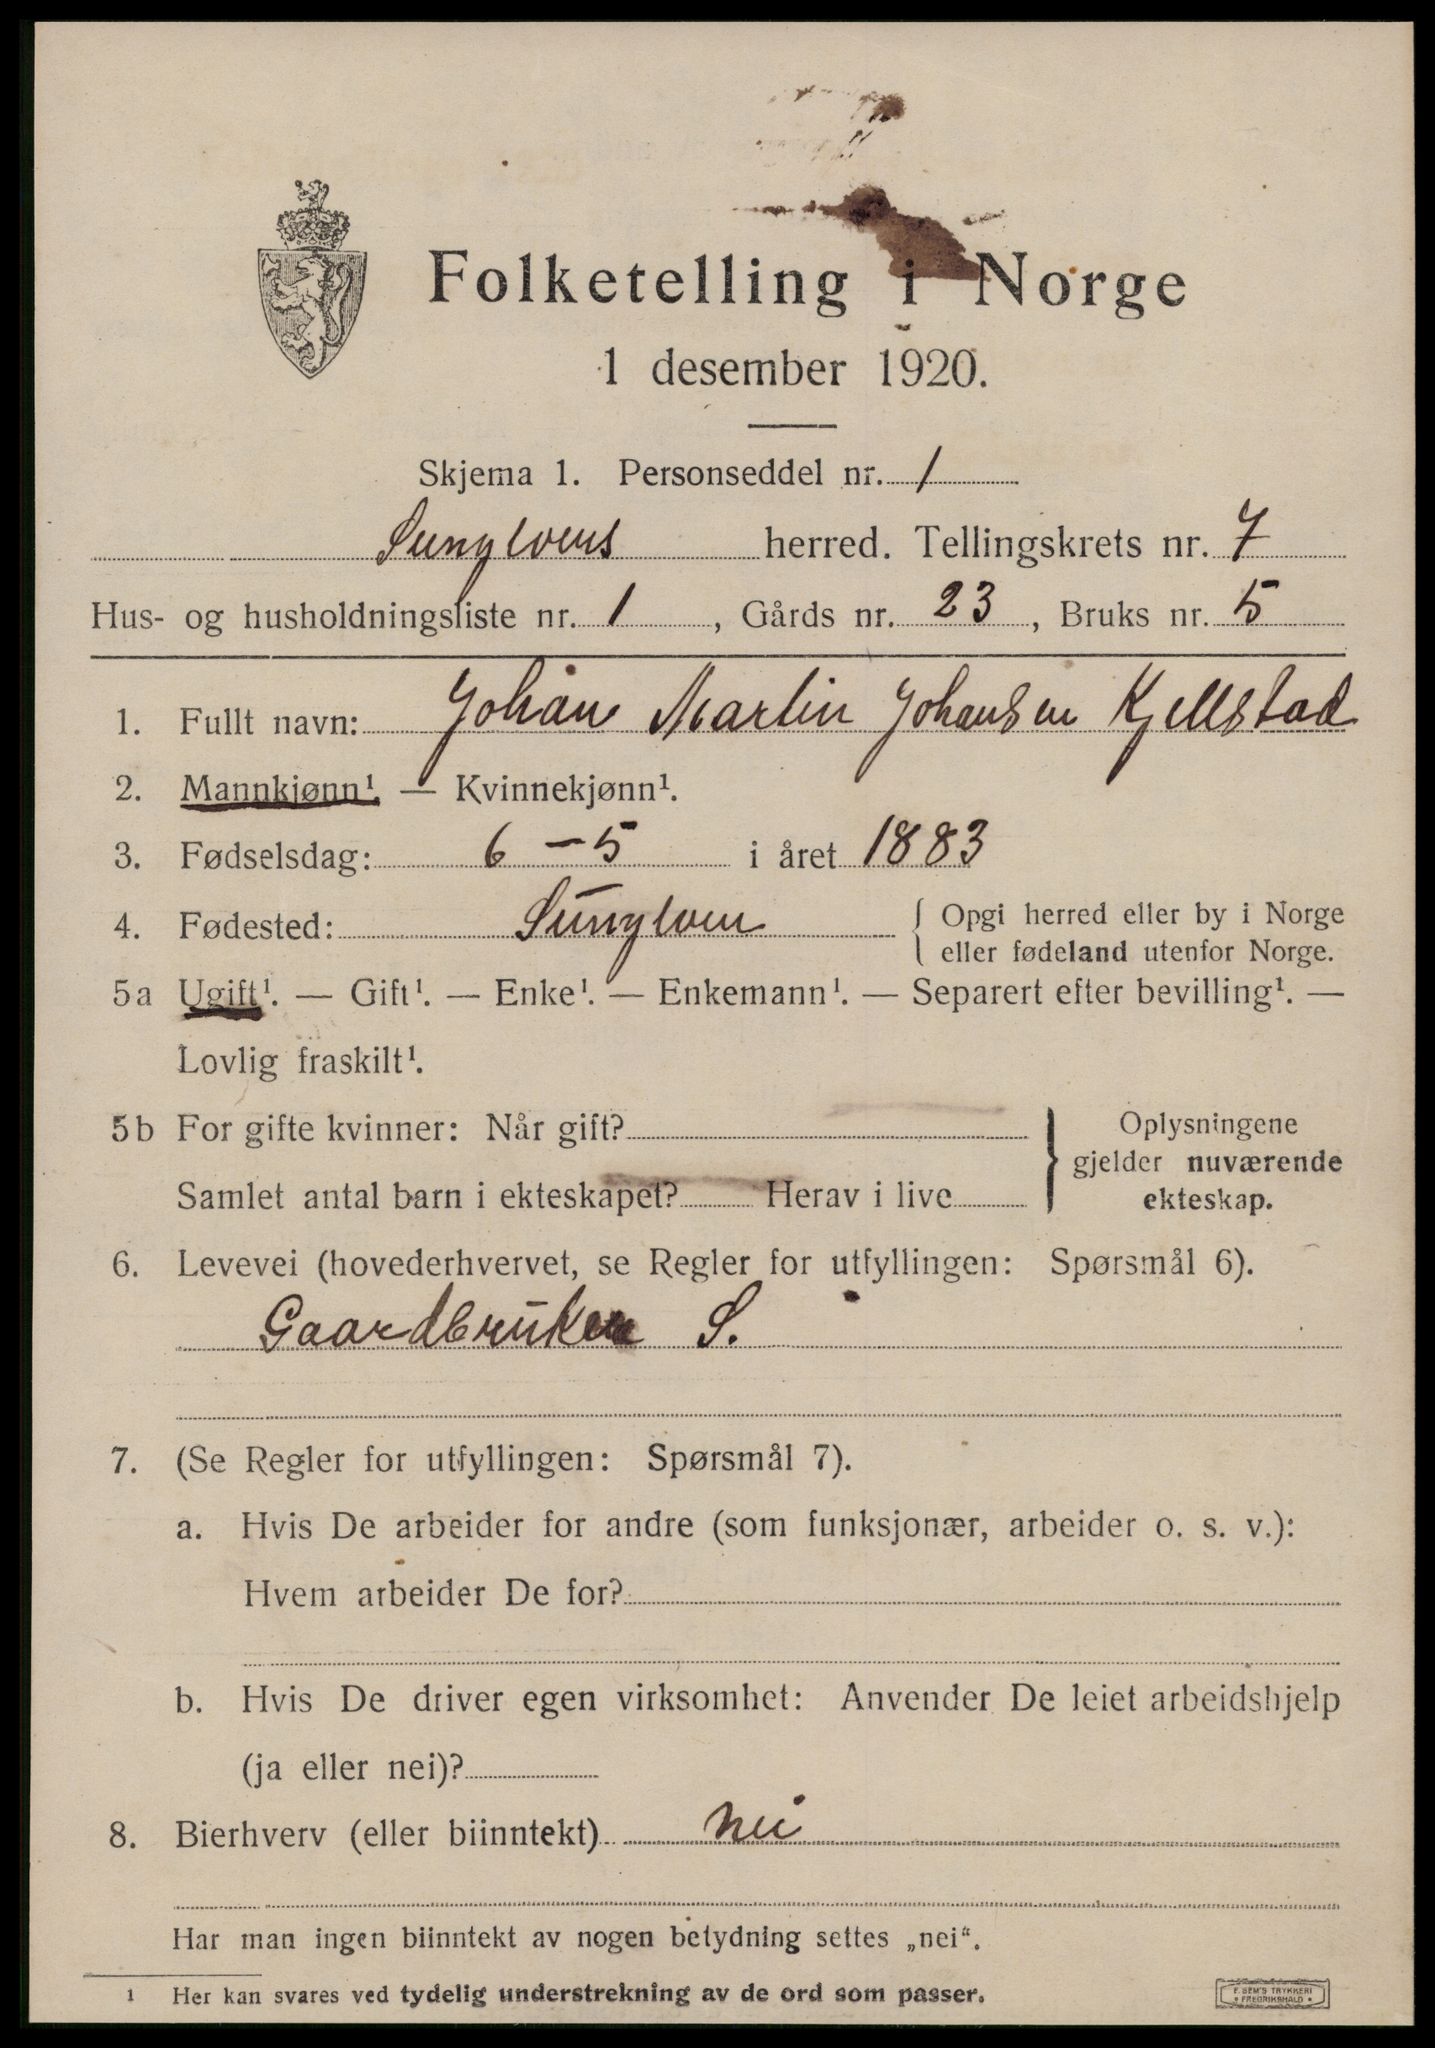 Folketelling i Norge
1 desember 1920.
Skjema 1. Personseddel nr. 1
Sunylvens herred. Tellingskrets nr. 7
Hus- og husholdningsliste nr. 1, Gårds nr. 23, Bruks nr. 5
1. Fullt navn: Johan Martin Johansen Kjellstad
2. Mannkjønn¹. — Kvinnekjønn¹.
3. Fødselsdag: 6 – 5 i året 1883
4. Fødested: Sunylven { Opgi herred eller by i Norge
eller fødeland utenfor Norge.
5a Ugift¹. — Gift¹. — Enke¹. — Enkemann¹. — Separert efter bevilling¹. —
Lovlig fraskilt¹.
5b For gifte kvinner: Når gift?
Samlet antal barn i ekteskapet? Herav i live
} Oplysningene
gjelder nuværende
ekteskap.
6. Levevei (hovederhvervet, se Regler for utfyllingen: Spørsmål 6).
Gaardbruker S.
7. (Se Regler for utfyllingen: Spørsmål 7).
a. Hvis De arbeider for andre (som funksjonær, arbeider o. s. v.):
Hvem arbeider De for?
b. Hvis De driver egen virksomhet: Anvender De leiet arbeidshjelp
(ja eller nei)?
8. Bierhverv (eller biinntekt) nei
Har man ingen biinntekt av nogen betydning settes „nei“.
1 Her kan svares ved tydelig understrekning av de ord som passer.
F. SEM'S TRYKKERI
• FREDRIKSHALD •